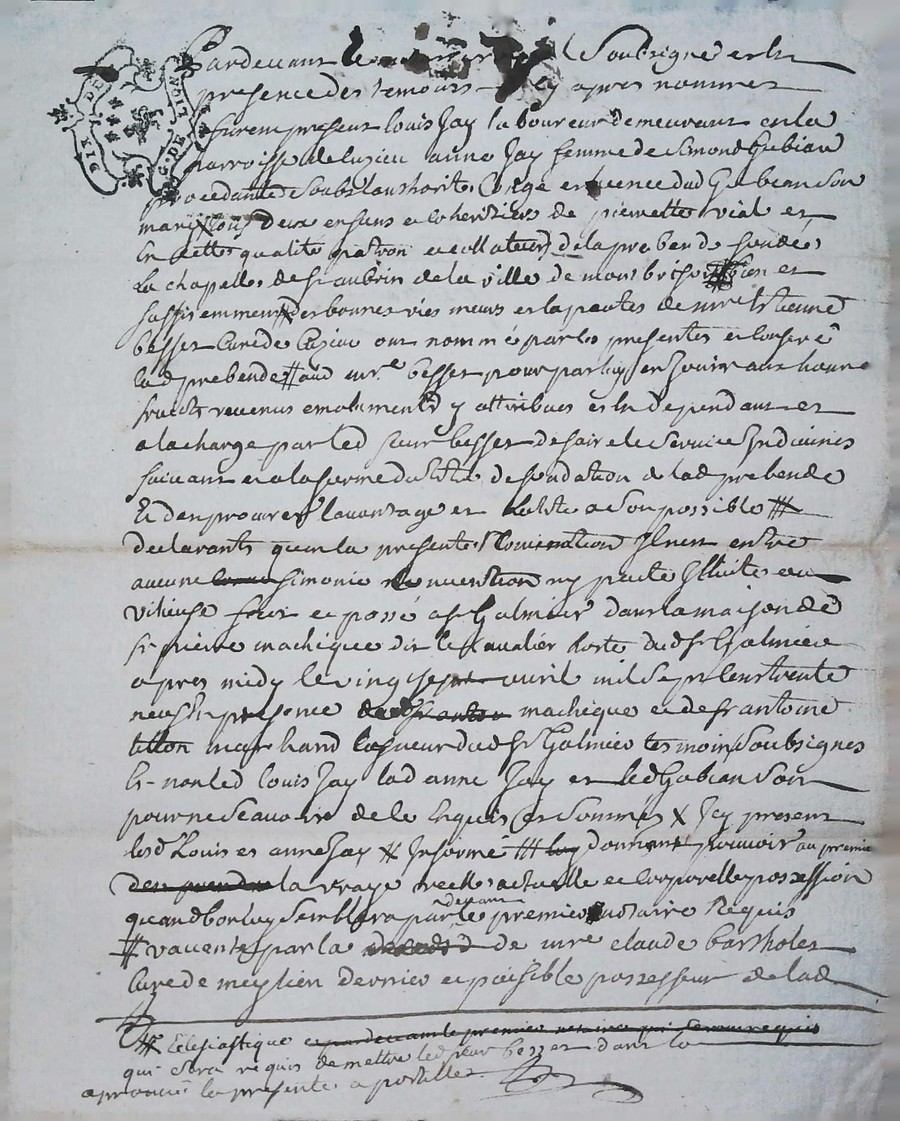 Pardevant le Soubsigné et en
presence des temoins cy apres nommes
furent present louis Jay laboureur demeurant en la
parroisse de luzieu anne Jay femme de Simond Gubian
procedante Soubs l'authorité Congé et licence dud Gubian Son
mary tous deux enfans et coheritiers de pierrette vial et
en cette qualité patron et collateurs de la prebende fondée
la chapelle de st aubrin de la ville de montbrison bien et
suffisemment des bonnes vies meurs et capacités de mre Etienne
besset Curé de luzieu ont nommé par les presentes et conferé
lad prebende # aud mre besset pour par luy en Jouir aux honneurs
fruits revenus emoluments y attribues et en dependant et
a la charge par led sieur besset de faire le Service Indivines
suivant et a la forme du titre de fondation de lad prebende
Et d'en procurer l'avantage et a Son possible #
declarants qu'en la presente Nomination Il n'est entré
aucune simonie convention ny pacte Illicite ou
vitieuse fait et passé a st Galmier dans la maison de
sr pierre machique dit le Cavalier hoste dud st Galmier
apres midy le vingt sept avril mil sept cent trente
neuf En presence machique et de sr antoine
marchand dud st Galmier temoins Soubsignes
Et non led louis Jay lad anne Jay et led Gubian Son
pour ne Scavoir de ce Enquis et Sommés X Icy present
lesd Louis et anne Jay # Informé ### donnant pouvoir au premier
la vraye reelle actuelle et corporelle possession
quand bon luy Semblera pardevant le premier notaire Requis
# vacente par la de mre claude barthole
Curé de meylieu dernier et paisible possesseur de lad
## Eclesiastique et pardevant le premier notaire qui Sera requis
qui Sera requis de mettre led sieur besset dans la
a prononcé la presente a postille